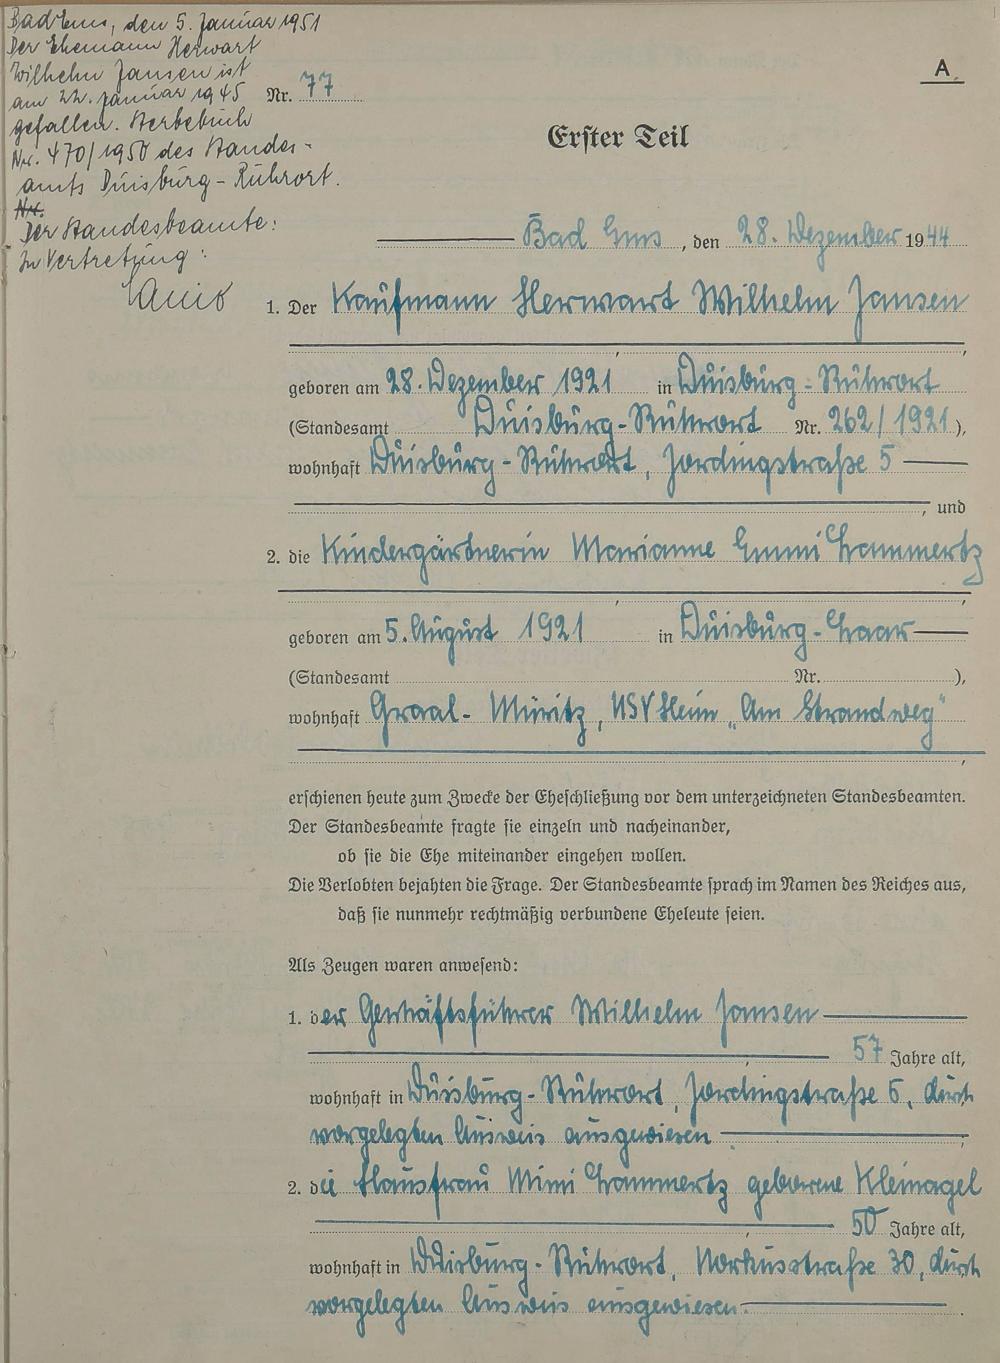 Bad Ems, den 5. Januar 1951
Der Ehemann Herwart
Wilhelm Jansen ist
am 22. Januar 1945
gefallen. Sterbebuch
Nr. 470/1950 des Standes-
amts Duisburg-Ruhrort.
Nr.
Der Standesbeamte:
In Vertretung:
A
Nr. 77
Erster Teil
Bad Ems, den 28. Dezember 1944
1. Der Kaufmann Herwart Wilhelm Jansen
,
geboren am 28. Dezember 1921 in Duisburg-Ruhrort
(Standesamt Duisburg-Ruhrort Nr. 262/1921),
wohnhaft Duisburg-Ruhrort, Jordingstraße 5
, und
2. die Kindergärtnerin Marianne Emmi Lammertz
,
geboren am 5. August 1921 in Duisburg-Laar
(Standesamt Nr. ),
wohnhaft Graal-Müritz, NSV Heim „Am Strandweg"
,
erschienen heute zum Zwecke der Eheschließung vor dem unterzeichneten Standesbeamten.
Der Standesbeamte fragte sie einzeln und nacheinander,
ob sie die Ehe miteinander eingehen wollen.
Die Verlobten bejahten die Frage. Der Standesbeamte sprach im Namen des Reiches aus,
daß sie nunmehr rechtmäßig verbundene Eheleute seien.
Als Zeugen waren anwesend:
1. der Geschäftsführer Wilhelm Jansen
, 57 Jahre alt,
wohnhaft in Duisburg-Ruhrort, Jordingstraße 5, durch
vorgelegten Ausweis ausgewiesen ;
2. die Hausfrau Mimi Lammertz geborene Kleinagel
, 50 Jahre alt,
wohnhaft in Duisburg-Ruhrort, Norkusstraße 30, durch
vorgelegten Ausweis ausgewiesen.